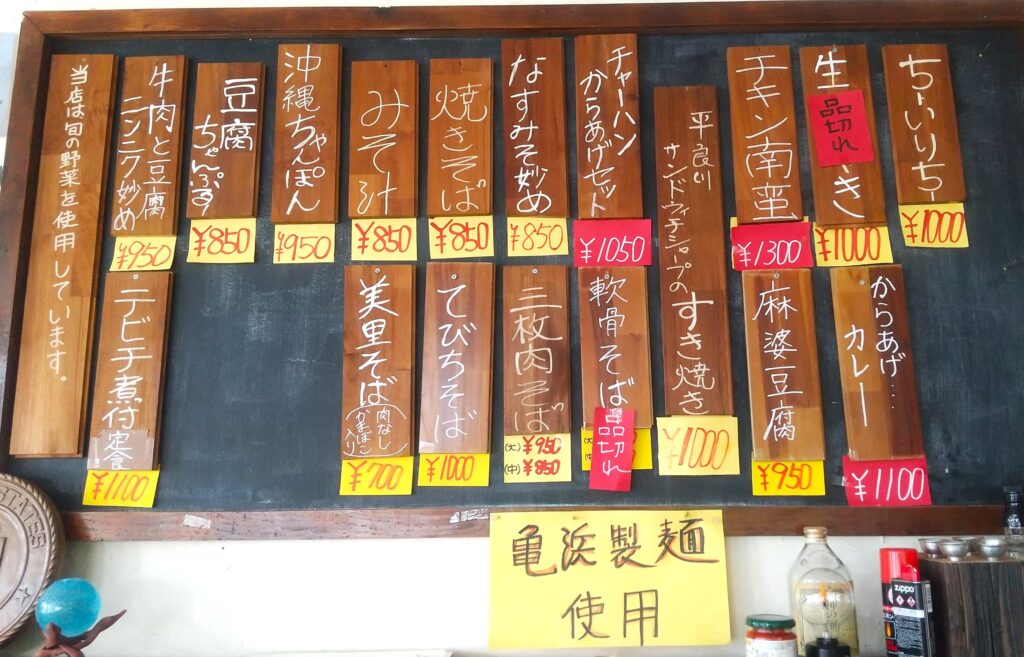 ちーいりちー
¥1000
生
品切れ
き
¥1000
チキン南蛮
¥1300
平良川
サンドウィッチシャープの
すき焼き
¥1000
チャーハン
からあげセット
¥1050
なすみそ炒め
¥850
焼きそば
¥850
みそ汁
¥850
沖縄ちゃんぽん
¥950
豆腐
ちゃんぷる
¥850
牛肉と豆腐
ニンニク炒め
¥950
当店は旬の野菜を使用しています。
からあげ…
カレー
¥1100
麻婆豆腐
¥950
軟骨そば
品切れ
三枚肉そば
(大) ¥950
(中) ¥850
てびちそば
¥1000
美里そば
(肉なし
かまぼこ
入り)
¥700
テビチ煮付定食
¥1100
亀浜製麺
使用
STATES
zippo